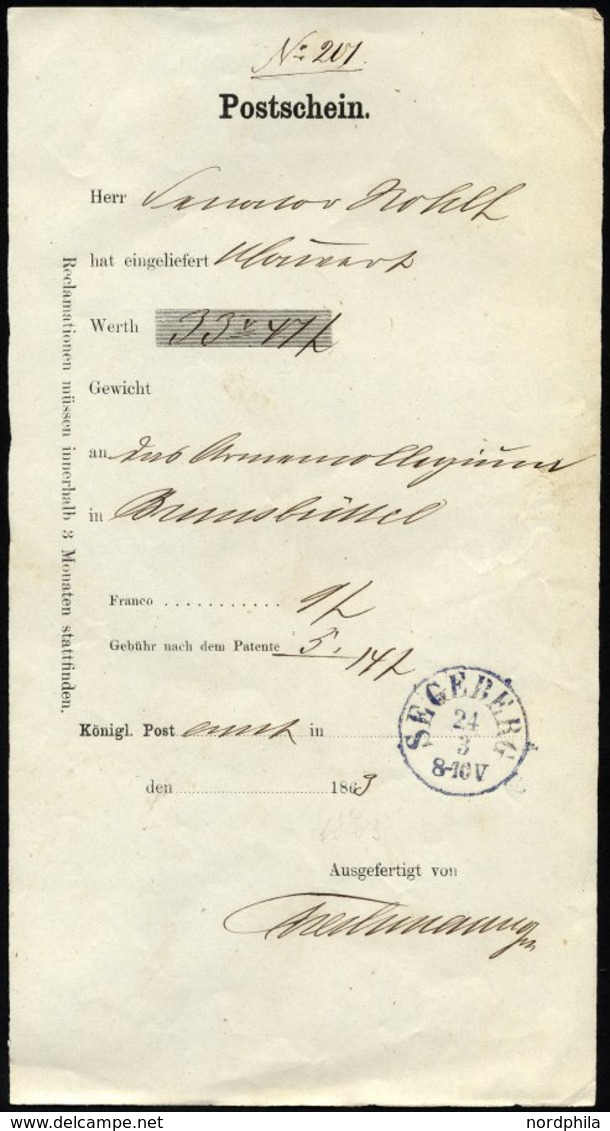 No 201.
Postschein.
Herr Senator
hat eingeliefert
Werth 33
Gewicht
an das Armencollegium
in Brunsbüttel
Franco ........... 9
Gebühr nach dem Patente 5.
14
Königl. Post amt in
SEGEBERG
24
3
8-10V
den 1863
Ausgefertigt von
Reclamationen müssen innerhalb 3 Monaten stattfinden.
nordphila